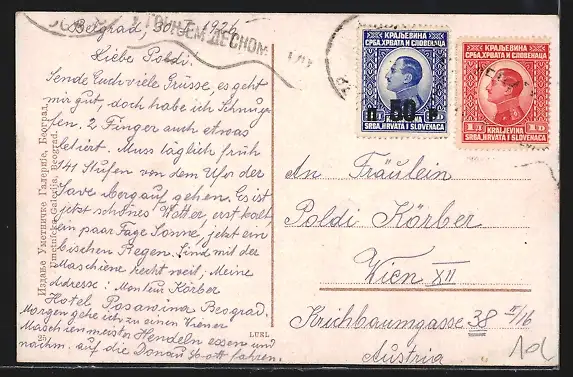 Beograd, 30.V. 1926
Liebe Poldi.
Sende Euch viele Grüsse, es geht
mir gut, doch habe ich Schnup-
fen. 2 Finger auch etwas
Muss täglich früh
141 Stufen von dem Ufer der
Save bergauf gehen. Es ist
jetzt schönes Wetter, erst kalt,
ein paar Tage Sonne, jetzt ein
bischen Regen. Sind mit der
Maschiene recht weit, Meine
Adresse: Monteur Körber
Hotel Posavina Beograd.
Morgen gehe ich zu einen Wiener
Maschienmeister Hendeln essen und
nachm. auf die Donau Boott fahren.
Издање Уметничке Галерије, Београд.
Umetnička Galerija, Beograd
25
LUKL
ДЕСНОМ
КРАЉЕВИНА
СРБА, ХРВАТА И СЛОВЕНАЦА
П 50 Р
KRALJEVINA
SRBA, HRVATA I SLOVENACA
КРАЉЕВИНА
СРБА, ХРВАТА И СЛОВЕНАЦА
KRALJEVINA
SRBA, HRVATA I SLOVENACA
An Fräulein
Poldi Körber
Wien XII
Krichbaumgasse 38 II/16
Austria